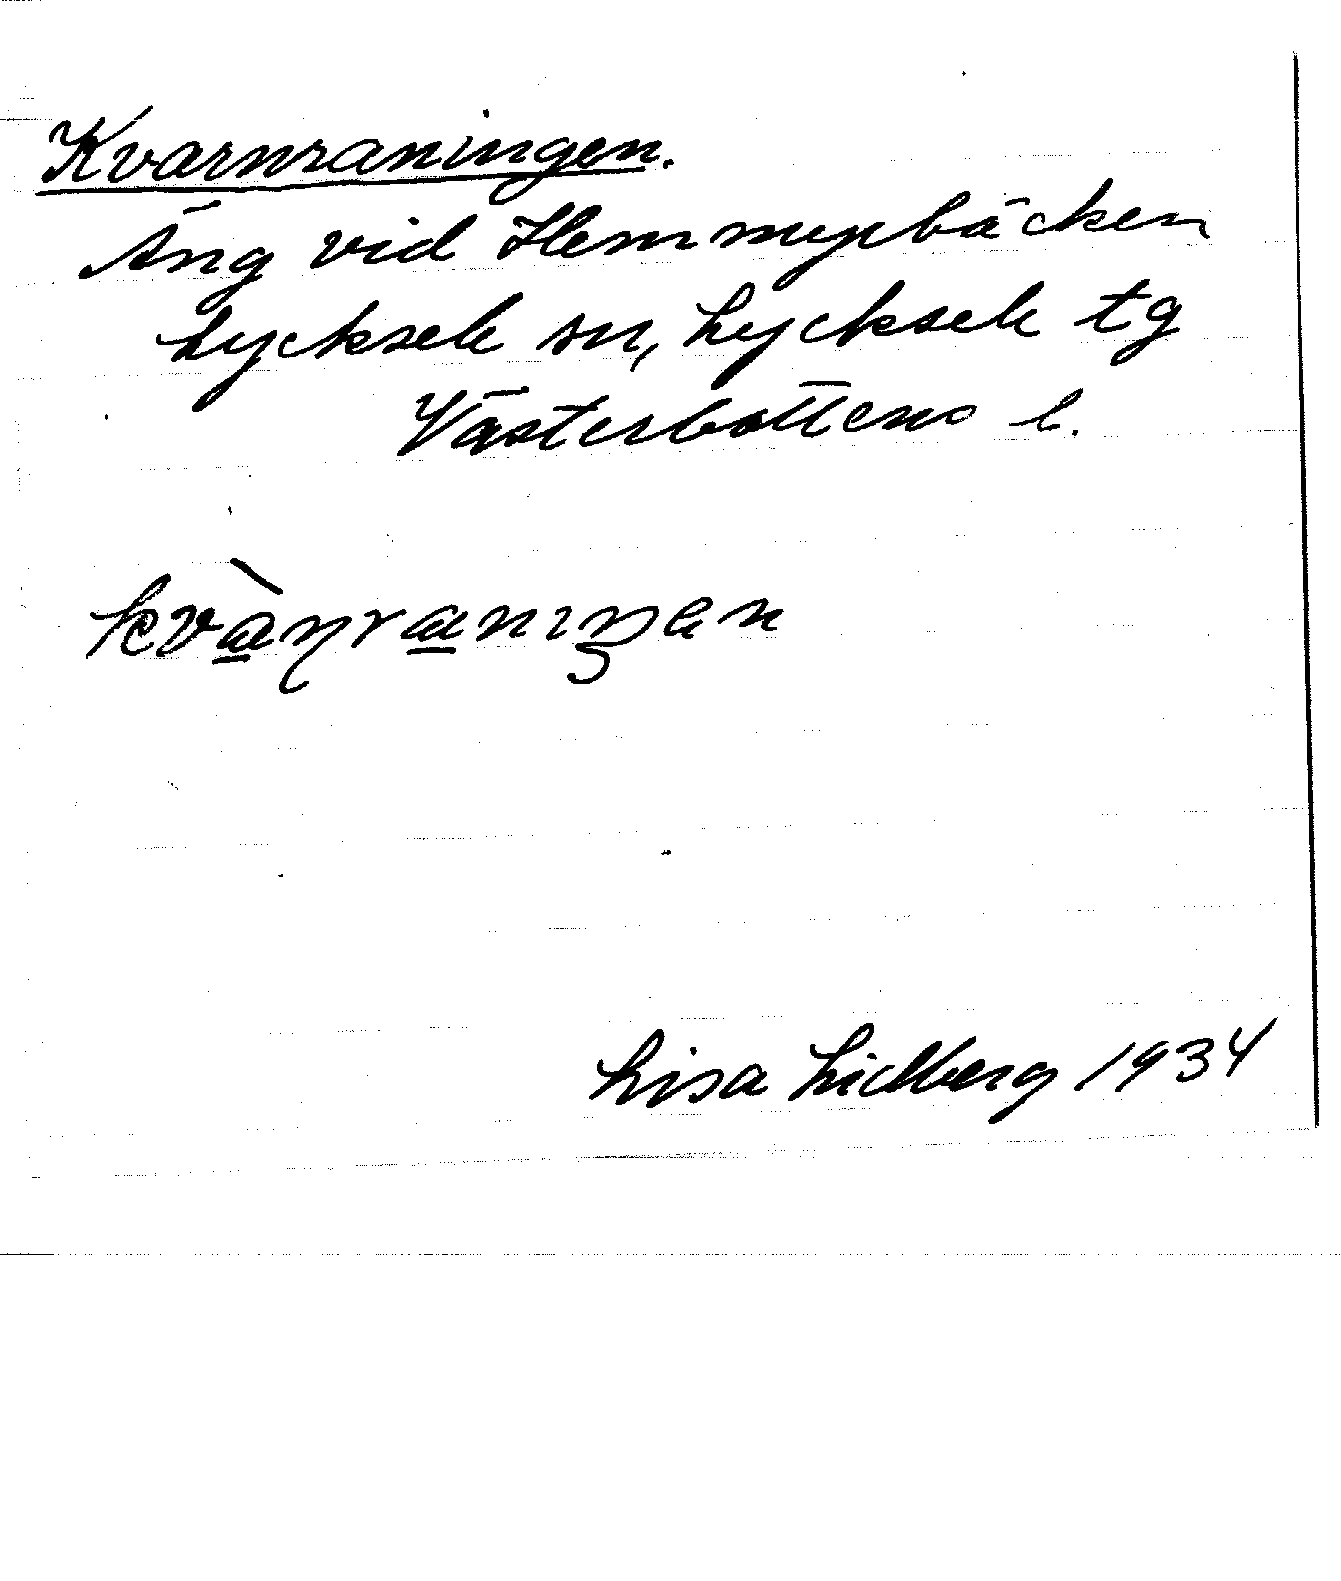 Kvarnraningen.
Äng vid Hemmyrbäcken
Lycksele sn, Lycksele tg
Västerbottens l.
kvà̱ɳra̱nıŋen
Lisa Lidberg 1934